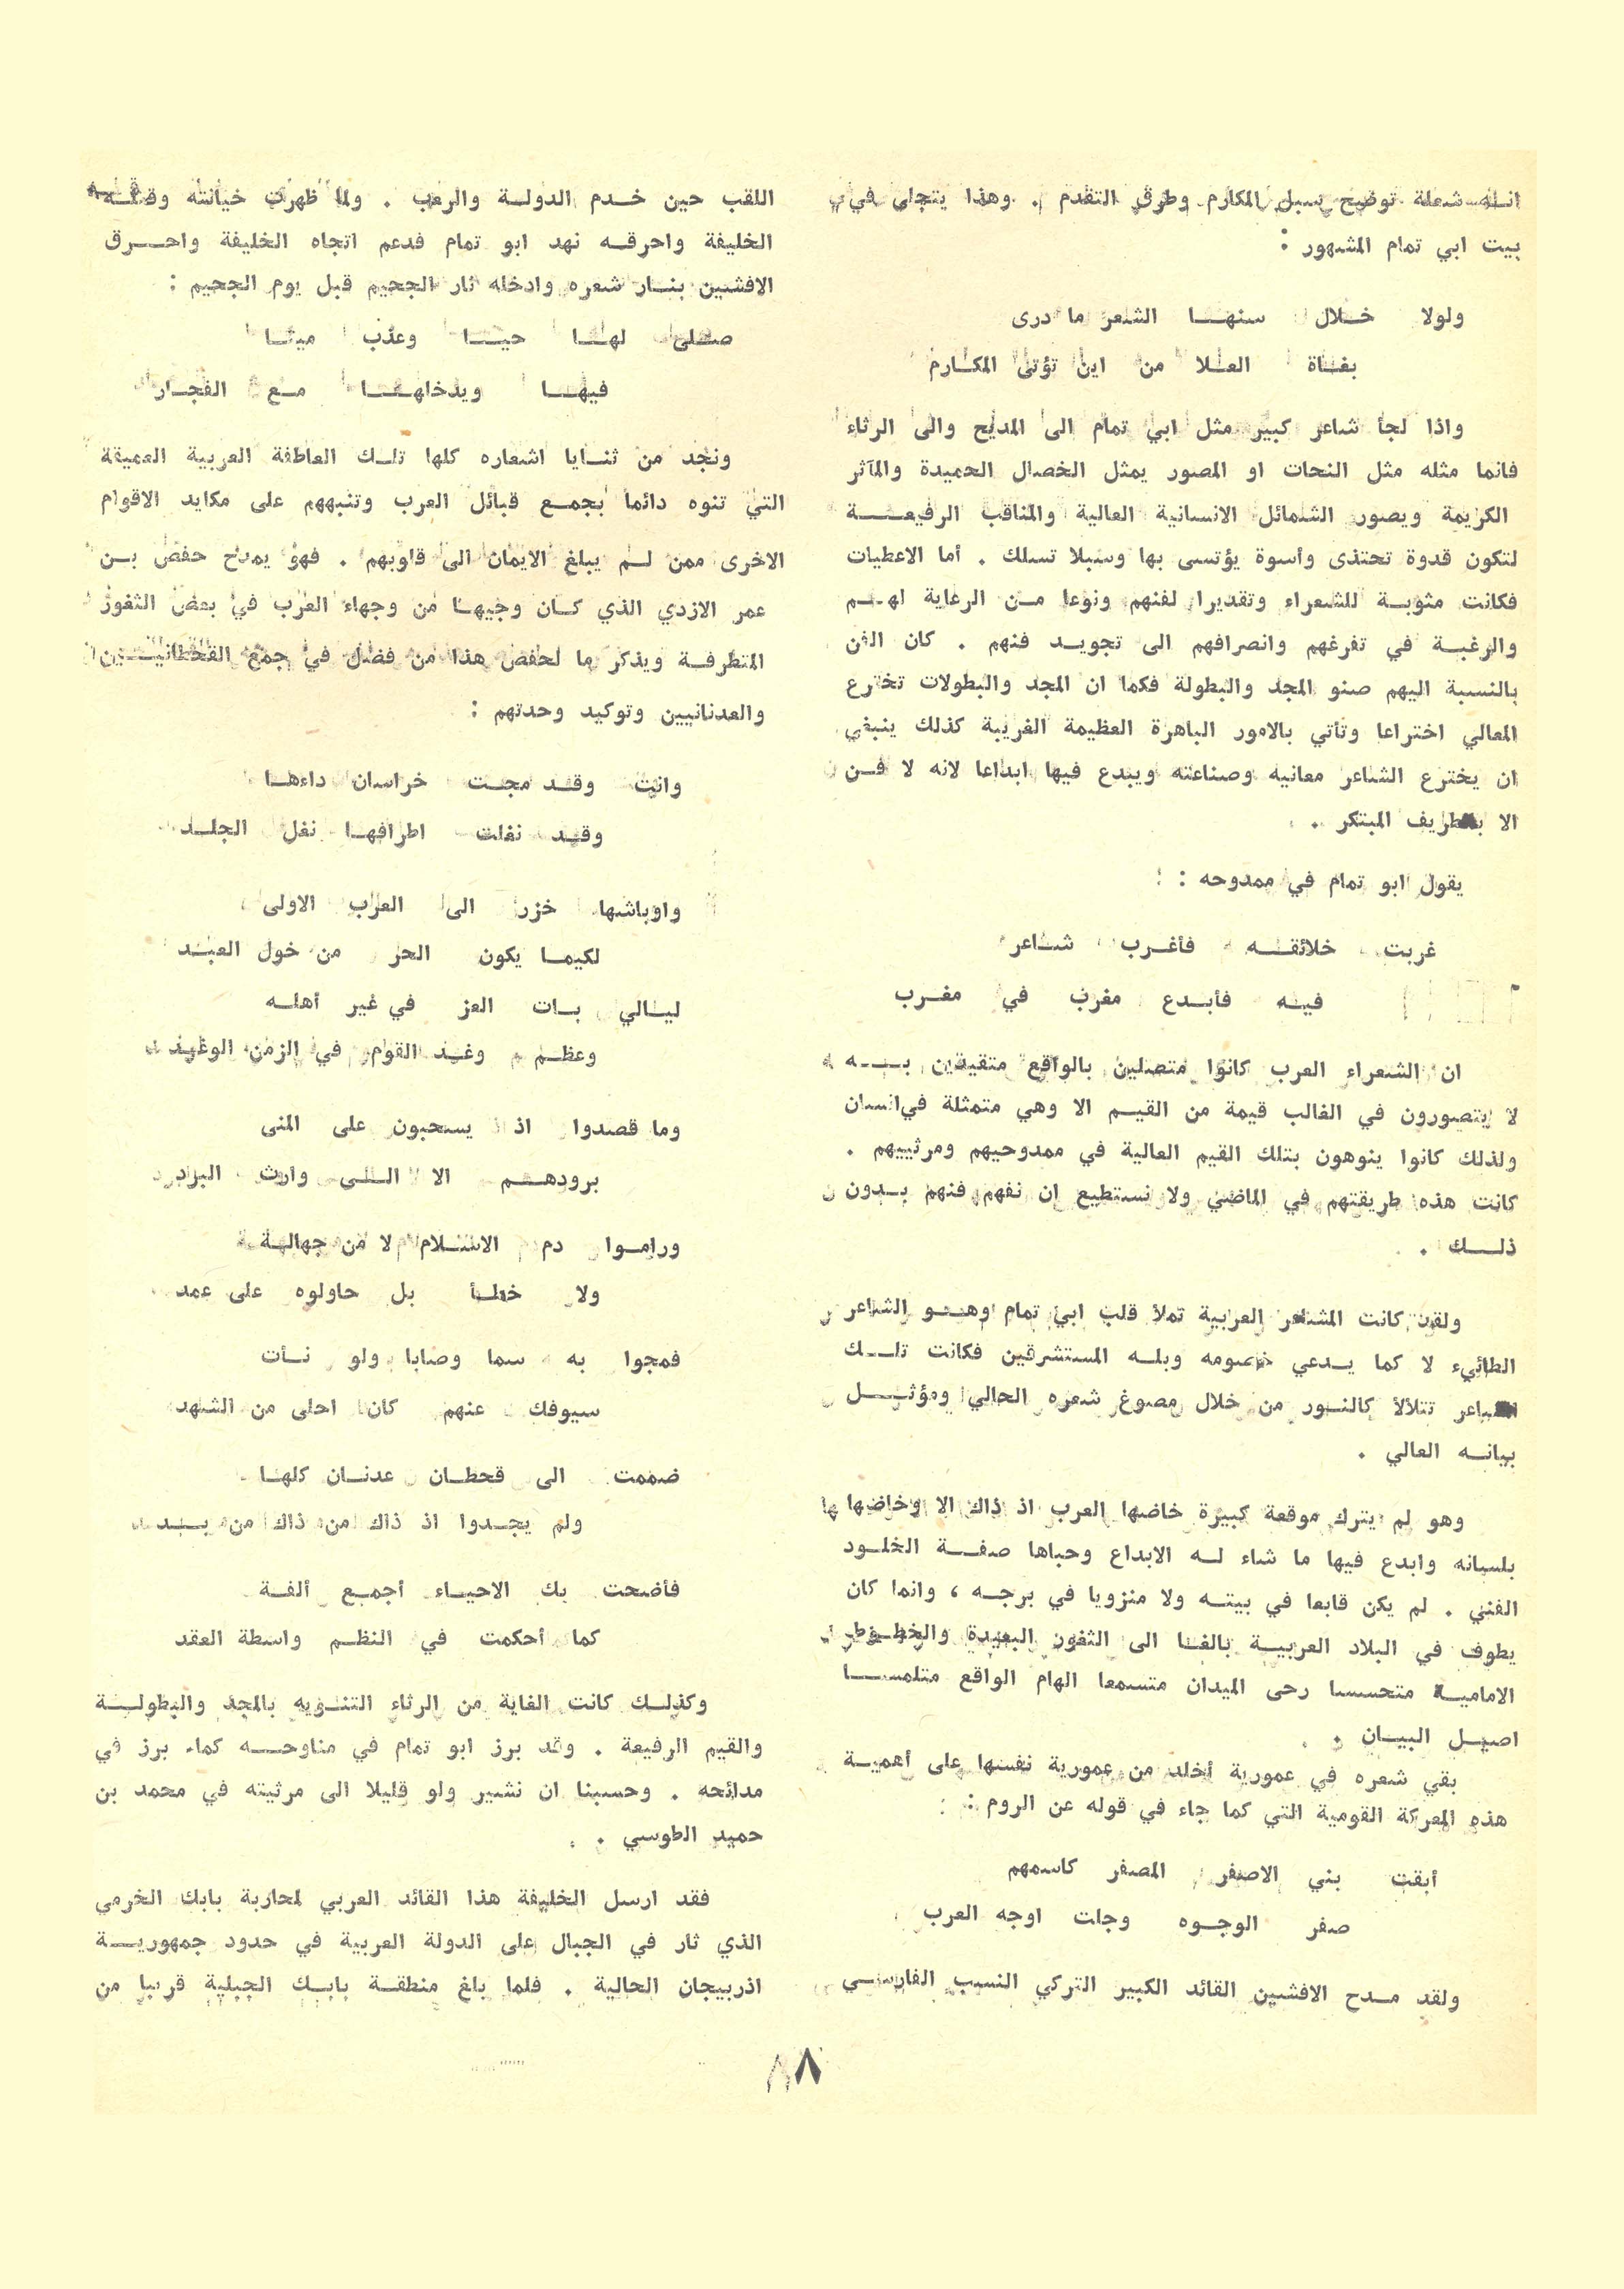 انه شعلة توضح سبل المكارم وطرق التقدم . وهذا يتجلى في
بيت ابي تمام المشهور :
ولولا خلال سنها الشعر ما درى
بغاة العلا من اين تؤتى المكارم
واذا لجأ شاعر كبير مثل ابي تمام الى المديح والى الرثاء
فانما مثله مثل النحات او المصور يمثل الخصال الحميدة والمآثر
الكريمة ويصور الشمائل الانسانية العالية والمناقب الرفيعة
لتكون قدوة تحتذى وأسوة يؤتسى بها وسبلا تسلك . أما الاعطيات
فكانت مثوبة للشعراء وتقديرا لفنهم ونوعا من الرعاية لهم
والرغبة في تفرغهم وانصرافهم الى تجويد فنهم . كان الفن
بالنسبة اليهم صنو المجد والبطولة فكما ان المجد والبطولات تخترع
المعالي اختراعا وتأتي بالامور الباهرة العظيمة الغريبة كذلك ينبغي
ان يخترع الشاعر معانيه وصناعته ويبدع فيها ابداعا لانه لا فن
الا بالطريف المبتكر .
يقول ابو تمام في ممدوحه :
غربت خلائقه فأغرب شاعر
فيه فأبدع مغرب في مغرب
ان الشعراء العرب كانوا متصلين بالواقع متقيدين به
لا يتصورون في الغالب قيمة من القيم الا وهي متمثلة في انسان
ولذلك كانوا ينوهون بتلك القيم العالية في ممدوحيهم ومرثييهم .
كانت هذه طريقتهم في الماضي ولا نستطيع ان نفهم فنهم بدون
ذلك .
ولقد كانت المشاعر العربية تملأ قلب ابي تمام وهو الشاعر
الطائيء لا كما يدعي خصومه وبله المستشرقين فكانت تلك
المشاعر تتلألأ كالنور من خلال مصوغ شعره الحالي ومؤثل
بيانه العالي .
وهو لم يترك موقعة كبيرة خاضها العرب اذ ذاك الا وخاضها
بلسانه وابدع فيها ما شاء له الابداع وحباها صفة الخلود
الفني . لم يكن قابعا في بيته ولا منزويا في برجه ، وانما كان
يطوف في البلاد العربية بالغا الى الثغور البعيدة والخطوط
الامامية متحسسا رحى الميدان متسمعا الهام الواقع متلمسا
اصيل البيان .
بقي شعره في عمورية أخلد من عمورية نفسها على أهمية
هذه المعركة القومية التي كما جاء في قوله عن الروم :
أبقت بني الاصفر المصفر كاسمهم
صفر الوجوه وجلت اوجه العرب
ولقد مدح الافشين القائد الكبير التركي النسب الفارسي
اللقب حين خدم الدولة والرعب . ولما ظهرت خيانته وقتله
الخليفة واحرقه نهد ابو تمام فدعم اتجاه الخليفة واحرق
الافشين بنار شعره وادخله نار الجحيم قبل يوم الجحيم :
صلى لها حيا وعذب ميتا
فيها ويدخلها مع الفجار
ونجد من ثنايا اشعاره كلها تلك العاطفة العربية العميقة
التي تنوه دائما بجمع قبائل العرب وتنبههم على مكايد الاقوام
الاخرى ممن لم يبلغ الايمان الى قلوبهم . فهو يمدح حفص بن
عمر الازدي الذي كان وجيها من وجهاء العرب في بعض الثغور
المتطرفة ويذكر ما لحفص هذا من فضل في جمع القحطانيين
والعدنانيين وتوكيد وحدتهم :
وانت وقد مجت خراسان داءها
وقد نغلت اطرافها نغل الجلد
واوباشها خزر الى العرب الاولى
لكيما يكون الحر من خول العبد
ليالي بات العز في غير أهله
وعظم وغد القوم في الزمن الوغد
وما قصدوا اذ يسحبون على المنى
برودهم الا الى وارث البرد
وراموا دم الاسلام لا من جهالة
ولا خطأ بل حاولوه على عمد
فمجوا به سما وصابا ولو نأت
سيوفك عنهم كان احلى من الشهد
ضممت الى قحطان عدنان كلها
ولم يجدوا اذ ذاك من ذاك من بد
فأضحت بك الاحياء أجمع ألفة
كما أحكمت في النظم واسطة العقد
وكذلك كانت الغاية من الرثاء التنويه بالمجد والبطولة
والقيم الرفيعة . وقد برز ابو تمام في مناوحه كما برز في
مدائحه . وحسبنا ان نشير ولو قليلا الى مرثيته في محمد بن
حميد الطوسي .
فقد ارسل الخليفة هذا القائد العربي لمحاربة بابك الخرمي
الذي ثار في الجبال على الدولة العربية في حدود جمهورية
اذربيجان الحالية . فلما بلغ منطقة بابك الجبلية قريبا من
٨٨